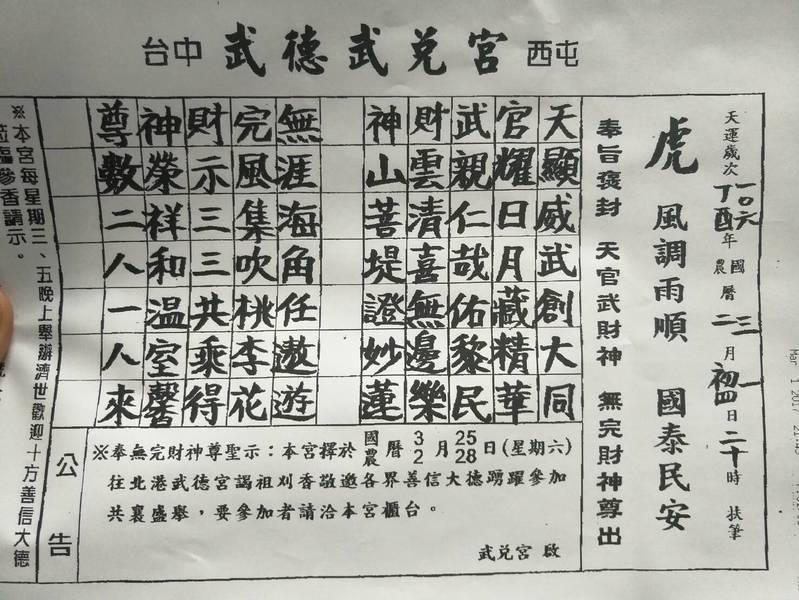 台中 武德武兌宮 西屯
天運歲次丁酉一0六年國農曆三二月一初四日二十時 扶筆
虎 風調雨順 國泰民安
奉旨褒封 天官武財神 無完財神尊出
天顯威武創大同
官耀日月藏精華
武親仁哉佑黎民
財雲清喜無邊樂
神山菩堤證妙蓮
無涯海角任遨遊
完風集吹桃李花
財示三三共乘得
神榮祥和溫室馨
尊數二人一人來
公告
※奉無完財神尊聖示:本宮擇於國農曆3 2月25 28日(星期六)
往北港武德宮謁祖刈香敬邀各界善信大德踴躍參加
共襄盛舉,要參加者請洽本宮櫃台。
武兌宮 啟
※本宮每星期三、五晚上舉辦濟世歡迎十方善信大德
蒞臨參香請示。
Mar 1 2017